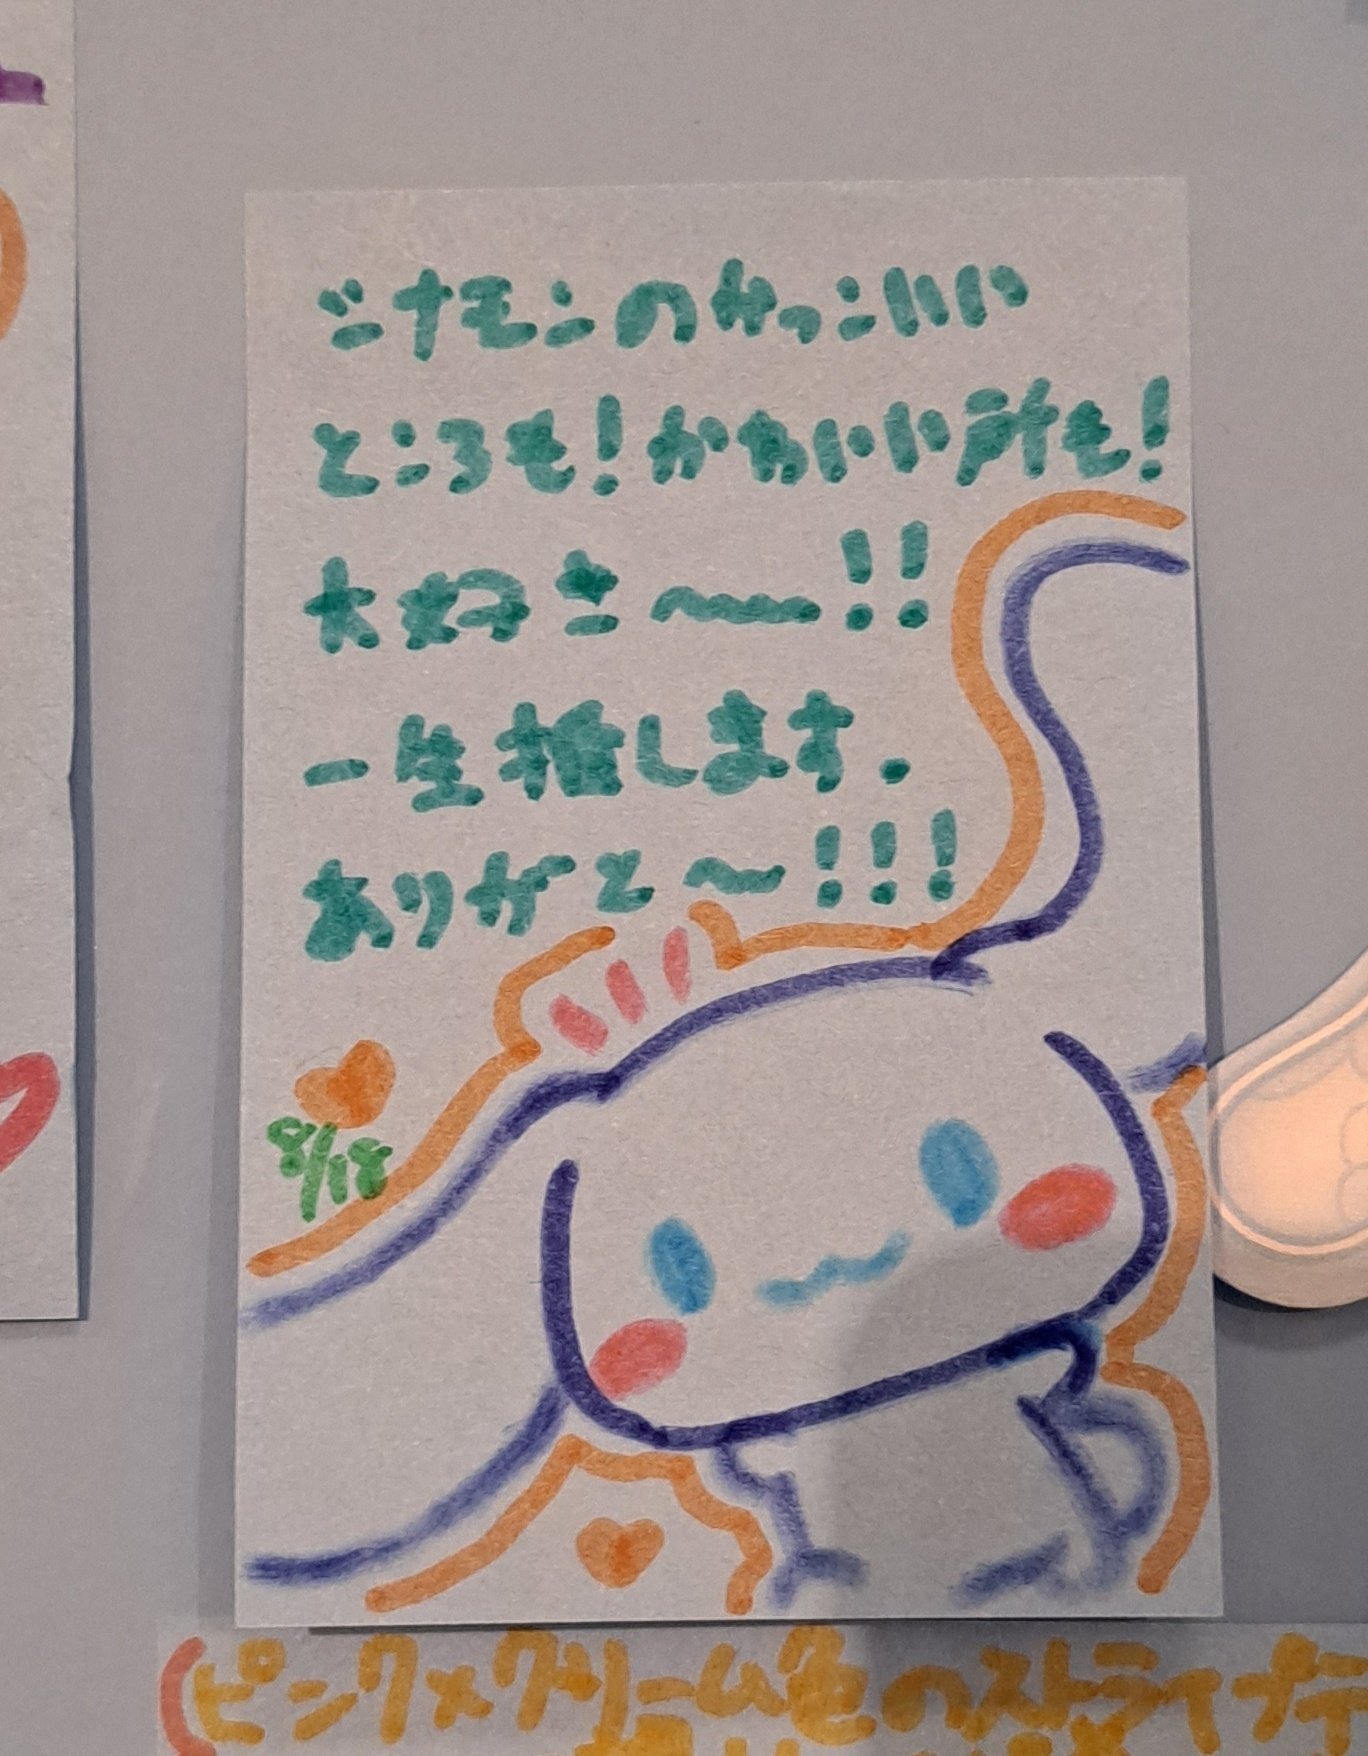 シナモンのかっこいい
ところも!かわいい所も!
大好き〜!!
一生推します.
ありがと〜!!!
8/18
(ピンク×クリーム色のストライプテ